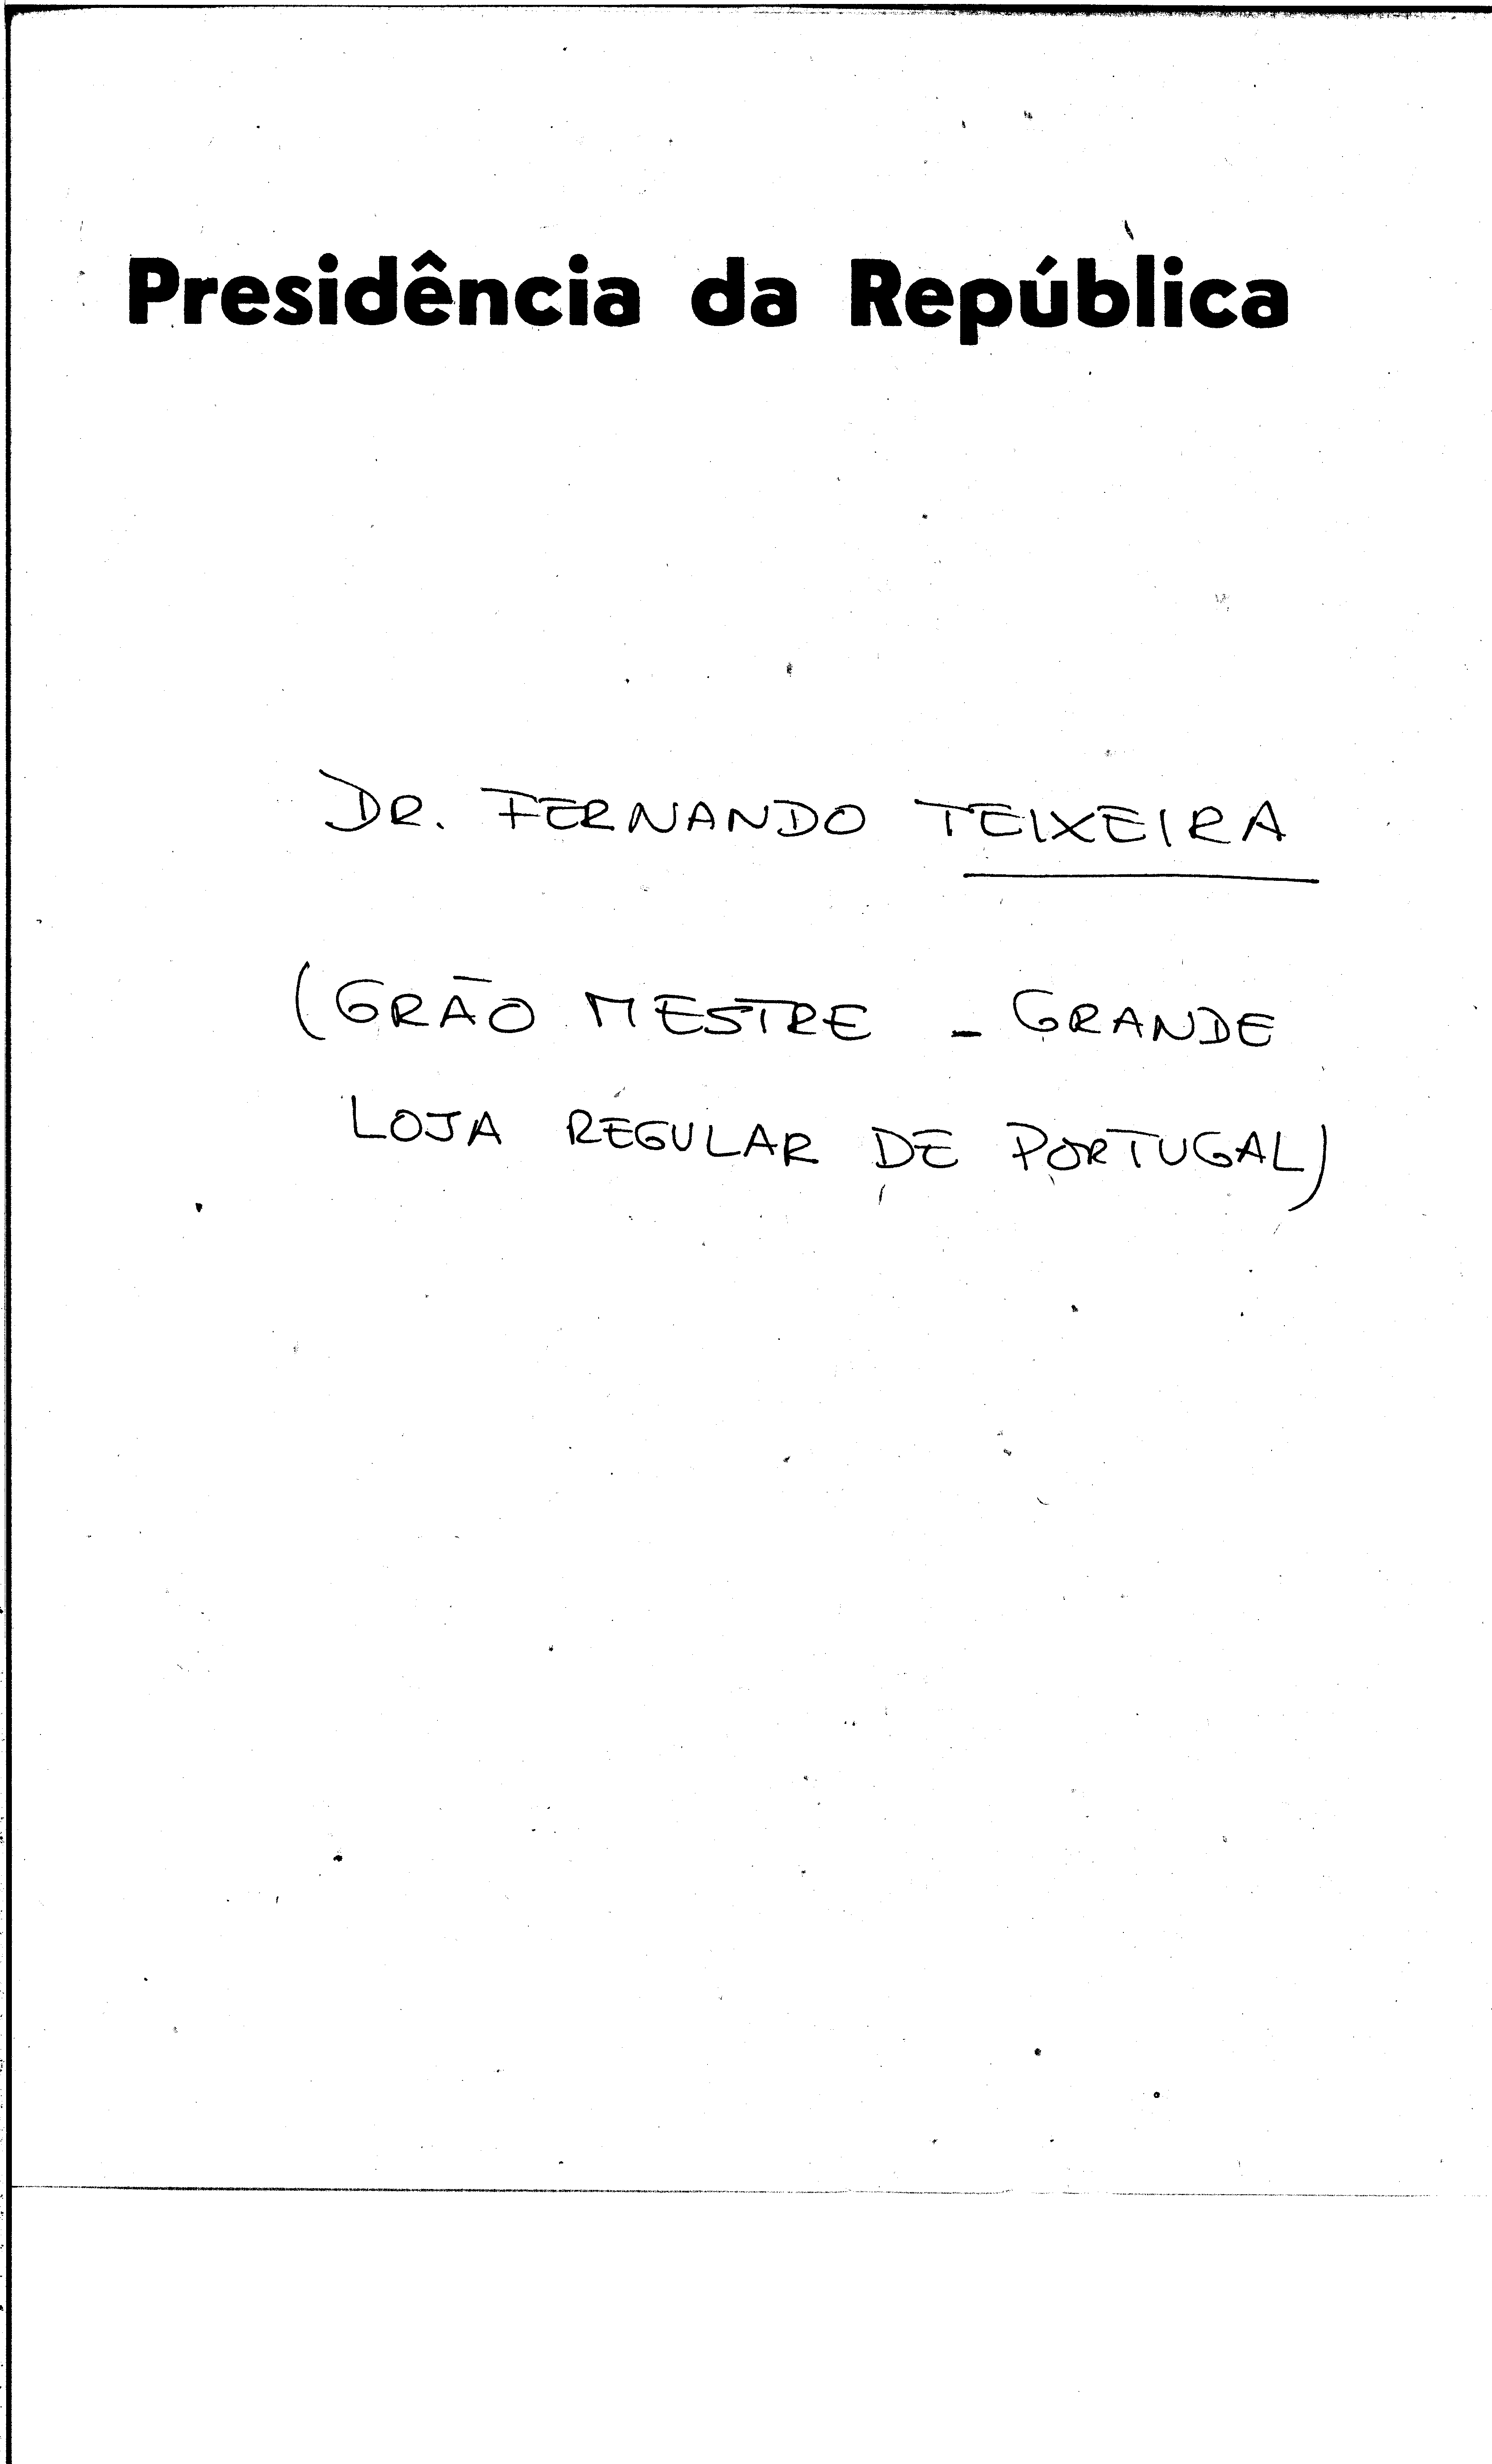 Presidência da República
DR. FERNANDO TEIXEIRA
(GRÃO MESTRE - GRANDE
LOJA REGULAR DE PORTUGAL)